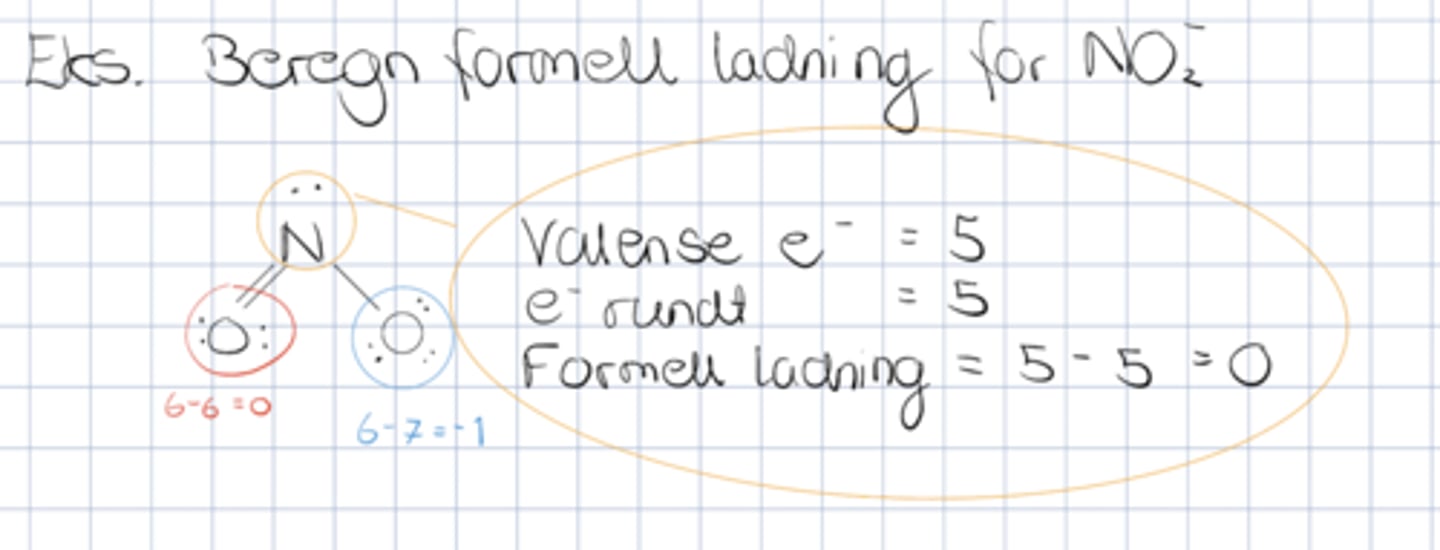 Eks. Beregn formell ladning for NO₂⁻
N
O O
6-6=0
6-7=-1
Valense e⁻ = 5
e⁻ rundt = 5
Formell ladning = 5-5 = 0